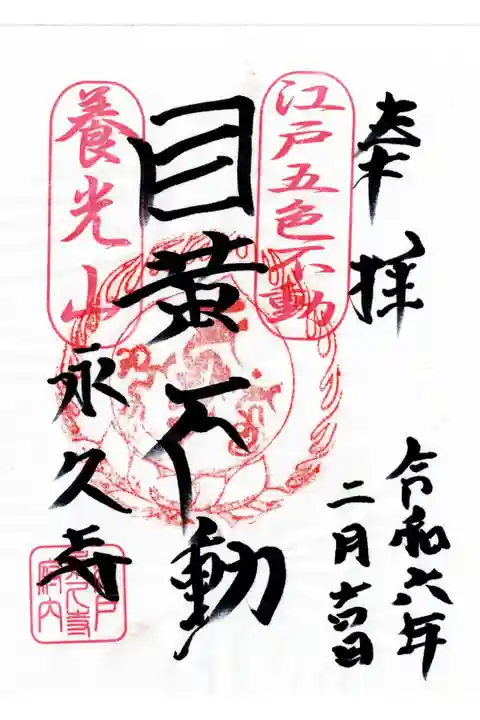 奉拝
令和六年
二月
江戸五色不動
目黄不動
養光山
永久寺